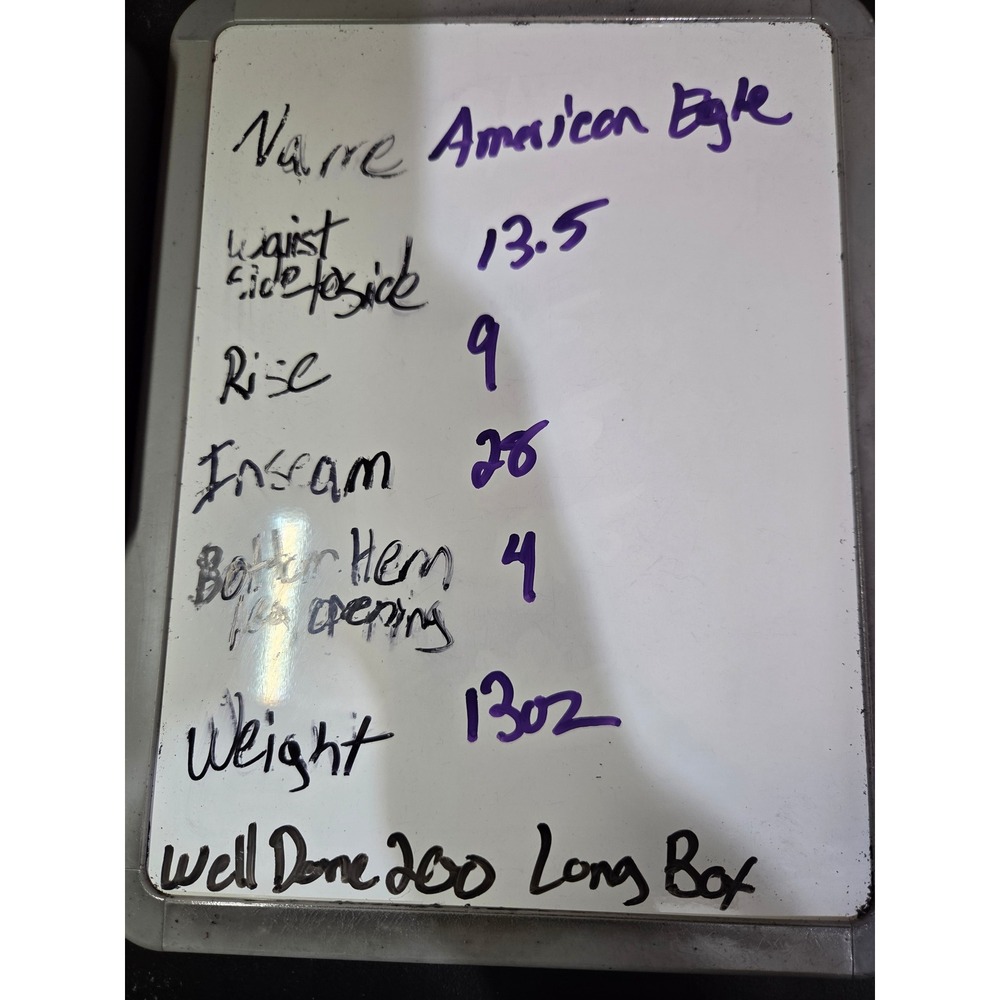 Name American Egle
Waist 13.5
side to side
Rise 9
Inseam 28
Bottom Hem 4
leg opening
Weight 13oz
Well Done 200 Long Box